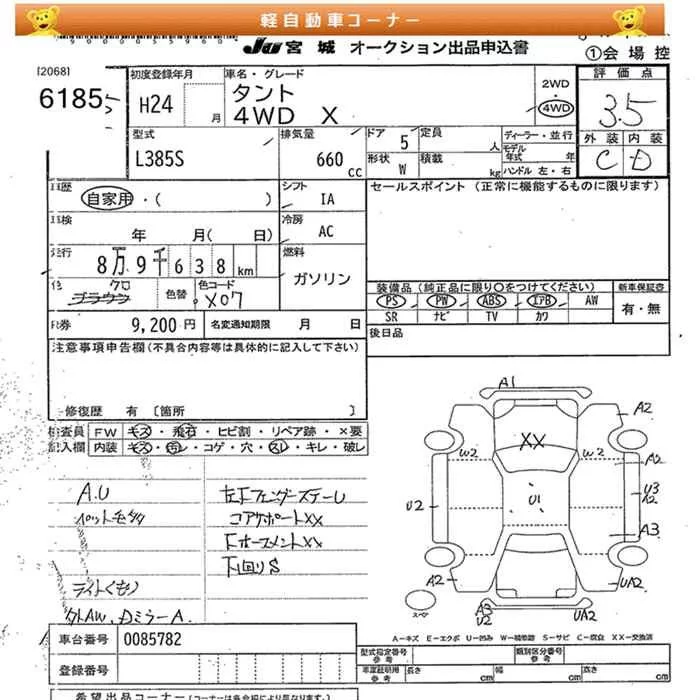 軽自動車コーナー
JU 宮城 オークション出品申込書
①会場控
[2068]
6185
初度登録年月
H24
月
車名・グレード
タント
4WD X
2WD
4WD
評価点
3.5
外装 内装
C D
型式
L385S
排気量
660 CC
ドア 5
形状 W
定員 人
積載 kg
ディーラー・並行
モデル年式 年
ハンドル 左・右
歴
自家用・( )
シフト
IA
セールスポイント (正常に機能するものに限ります)
検
年 月( 日)
冷房
AC
行
8万9千638km
燃料
ガソリン
クロ
ブラウン
色替
色コード
X07
装備品 (純正品に限り○をつけてください)
新車保証書
PS PW ABS エアB AW
SR ナビ TV カワ
有・無
券 9,200円
名変通知期限 月 日
後日品
注意事項申告欄(不具合内容等は具体的に記入して下さい)
修復歴 有 [箇所 ]
検査員 FW キズ・飛石・ヒビ割・リペア跡・×要
記入欄 内装 キズ・汚レ・コゲ・穴・スレ・キレ・破レ
A.U
ライトくもり
社外AW、DミラーA
コアサポートXX
下回りS
A1
A2
XX
W2
W2
A2
U2
U1
U3
A2
A3
A2
UA2
スペア
A3
U2
UA2
A-キズ E-エクボ U-凹み W-補修跡 S-サビ C-腐食 XX-交換済
車台番号 0085782
登録番号
型式指定番号
参考
類別区分番号
参考
車庫証明用
参考
長さ cm
幅 cm
高さ cm
希望出品コーナー(コーナーは会場により異なります。)